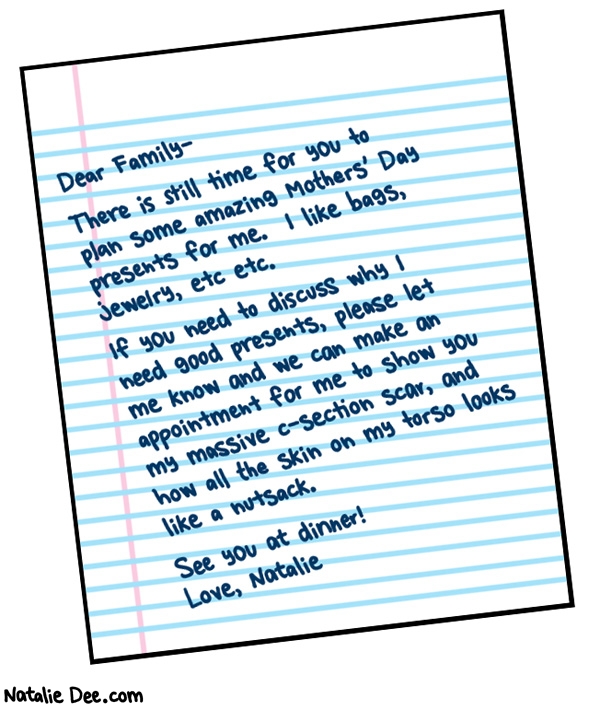 Dear Family-
There is still time for you to
plan some amazing Mothers' Day
presents for me. I like bags,
jewelry, etc etc.
If you need to discuss why I
need good presents, please let
me know and we can make an
appointment for me to show you
my massive c-section scar, and
how all the skin on my torso looks
like a nutsack.
See you at dinner!
Love, Natalie
Natalie Dee.com